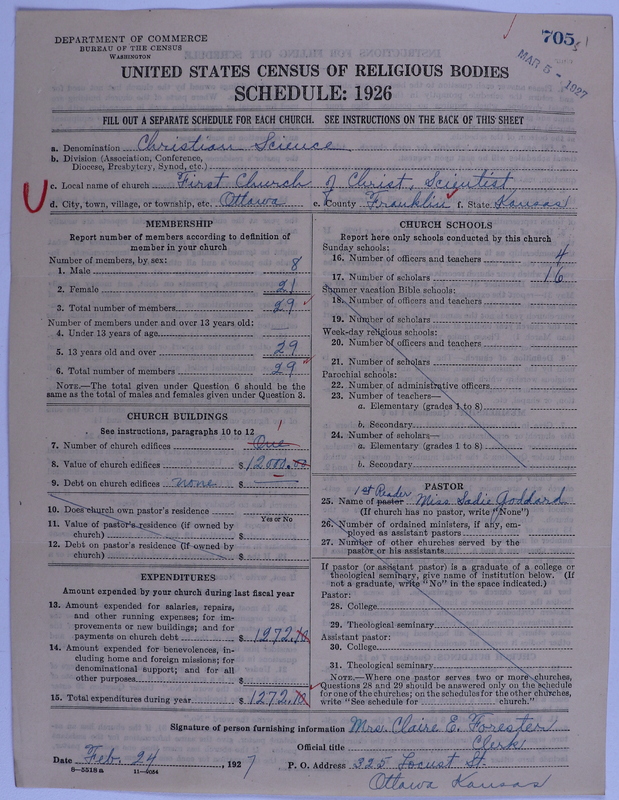 DEPARTMENT OF COMMERCE
BUREAU OF THE CENSUS
WASHINGTON
705
MAR 5 - 1927
UNITED STATES CENSUS OF RELIGIOUS BODIES
SCHEDULE: 1926
FILL OUT A SEPARATE SCHEDULE FOR EACH CHURCH. SEE INSTRUCTIONS ON THE BACK OF THIS SHEET
a. Denomination Christian Science
b. Division (Association, Conference,
Diocese, Presbytery, Synod, etc.)
c. Local name of church First Church of Christ, Scientist
d. City, town, village, or township, etc. Ottawa e. County Franklin f. State Kansas
MEMBERSHIP
Report number of members according to definition of
member in your church
Number of members, by sex:
1. Male 8
2. Female 21
3. Total number of members 29
Number of members under and over 13 years old:
4. Under 13 years of age
5. 13 years old and over 29
6. Total number of members 29
NOTE.—The total given under Question 6 should be
same as the total of males and females given under Question 3.
CHURCH BUILDINGS
See instructions, paragraphs 10 to 12
7. Number of church edifices One 1
8. Value of church edifices $12000.00
9. Debt on church edifices none $
10. Does church own pastor's residence
Yes or No
11. Value of pastor's residence (if owned by
church) $
12. Debt on pastor's residence (if owned by
church) $
EXPENDITURES
Amount expended by your church during last fiscal year
13. Amount expended for salaries, repairs,
and other running expenses; for im-
provements or new buildings; and for
payments on church debt $1272.10
14. Amount expended for benevolences, in-
cluding home and foreign missions; for
denominational support; and for all
other purposes $
15. Total expenditures during year $1272.10
CHURCH SCHOOLS
Report here only schools conducted by this church
Sunday schools:
16. Number of officers and teachers 4
17. Number of scholars 16
Summer vacation Bible schools:
18. Number of officers and teachers
19. Number of scholars
Week-day religious schools:
20. Number of officers and teachers
21. Number of scholars
Parochial schools:
22. Number of administrative officers
23. Number of teachers—
a. Elementary (grades 1 to 8)
b. Secondary
24. Number of scholars—
a. Elementary (grades 1 to 8)
b. Secondary
PASTOR
1st Reader
25. Name of pastor Miss Sadie Goddard
(If church has no pastor, write "None")
26. Number of ordained ministers, if any, em-
ployed as assistant pastors
27. Number of other churches served by the
pastor or his assistants
If pastor (or assistant pastor) is a graduate of a college or
theological seminary, give name of institution below. (If
not a graduate, write "No" in the space indicated.)
Pastor:
28. College
29. Theological seminary
Assistant pastor:
30. College
31. Theological seminary
NOTE.—Where one pastor serves two or more churches,
Questions 28 and 29 should be answered only on the schedule
for one of the churches; on the schedules for the other churches,
write "See schedule for church."
Signature of person furnishing information Mrs. Claire E. Forester
Official title Clerk
Date Feb. 24, 1927 P. O. Address 325 Locust St.
8—5518a 11—9054
Ottawa Kansas